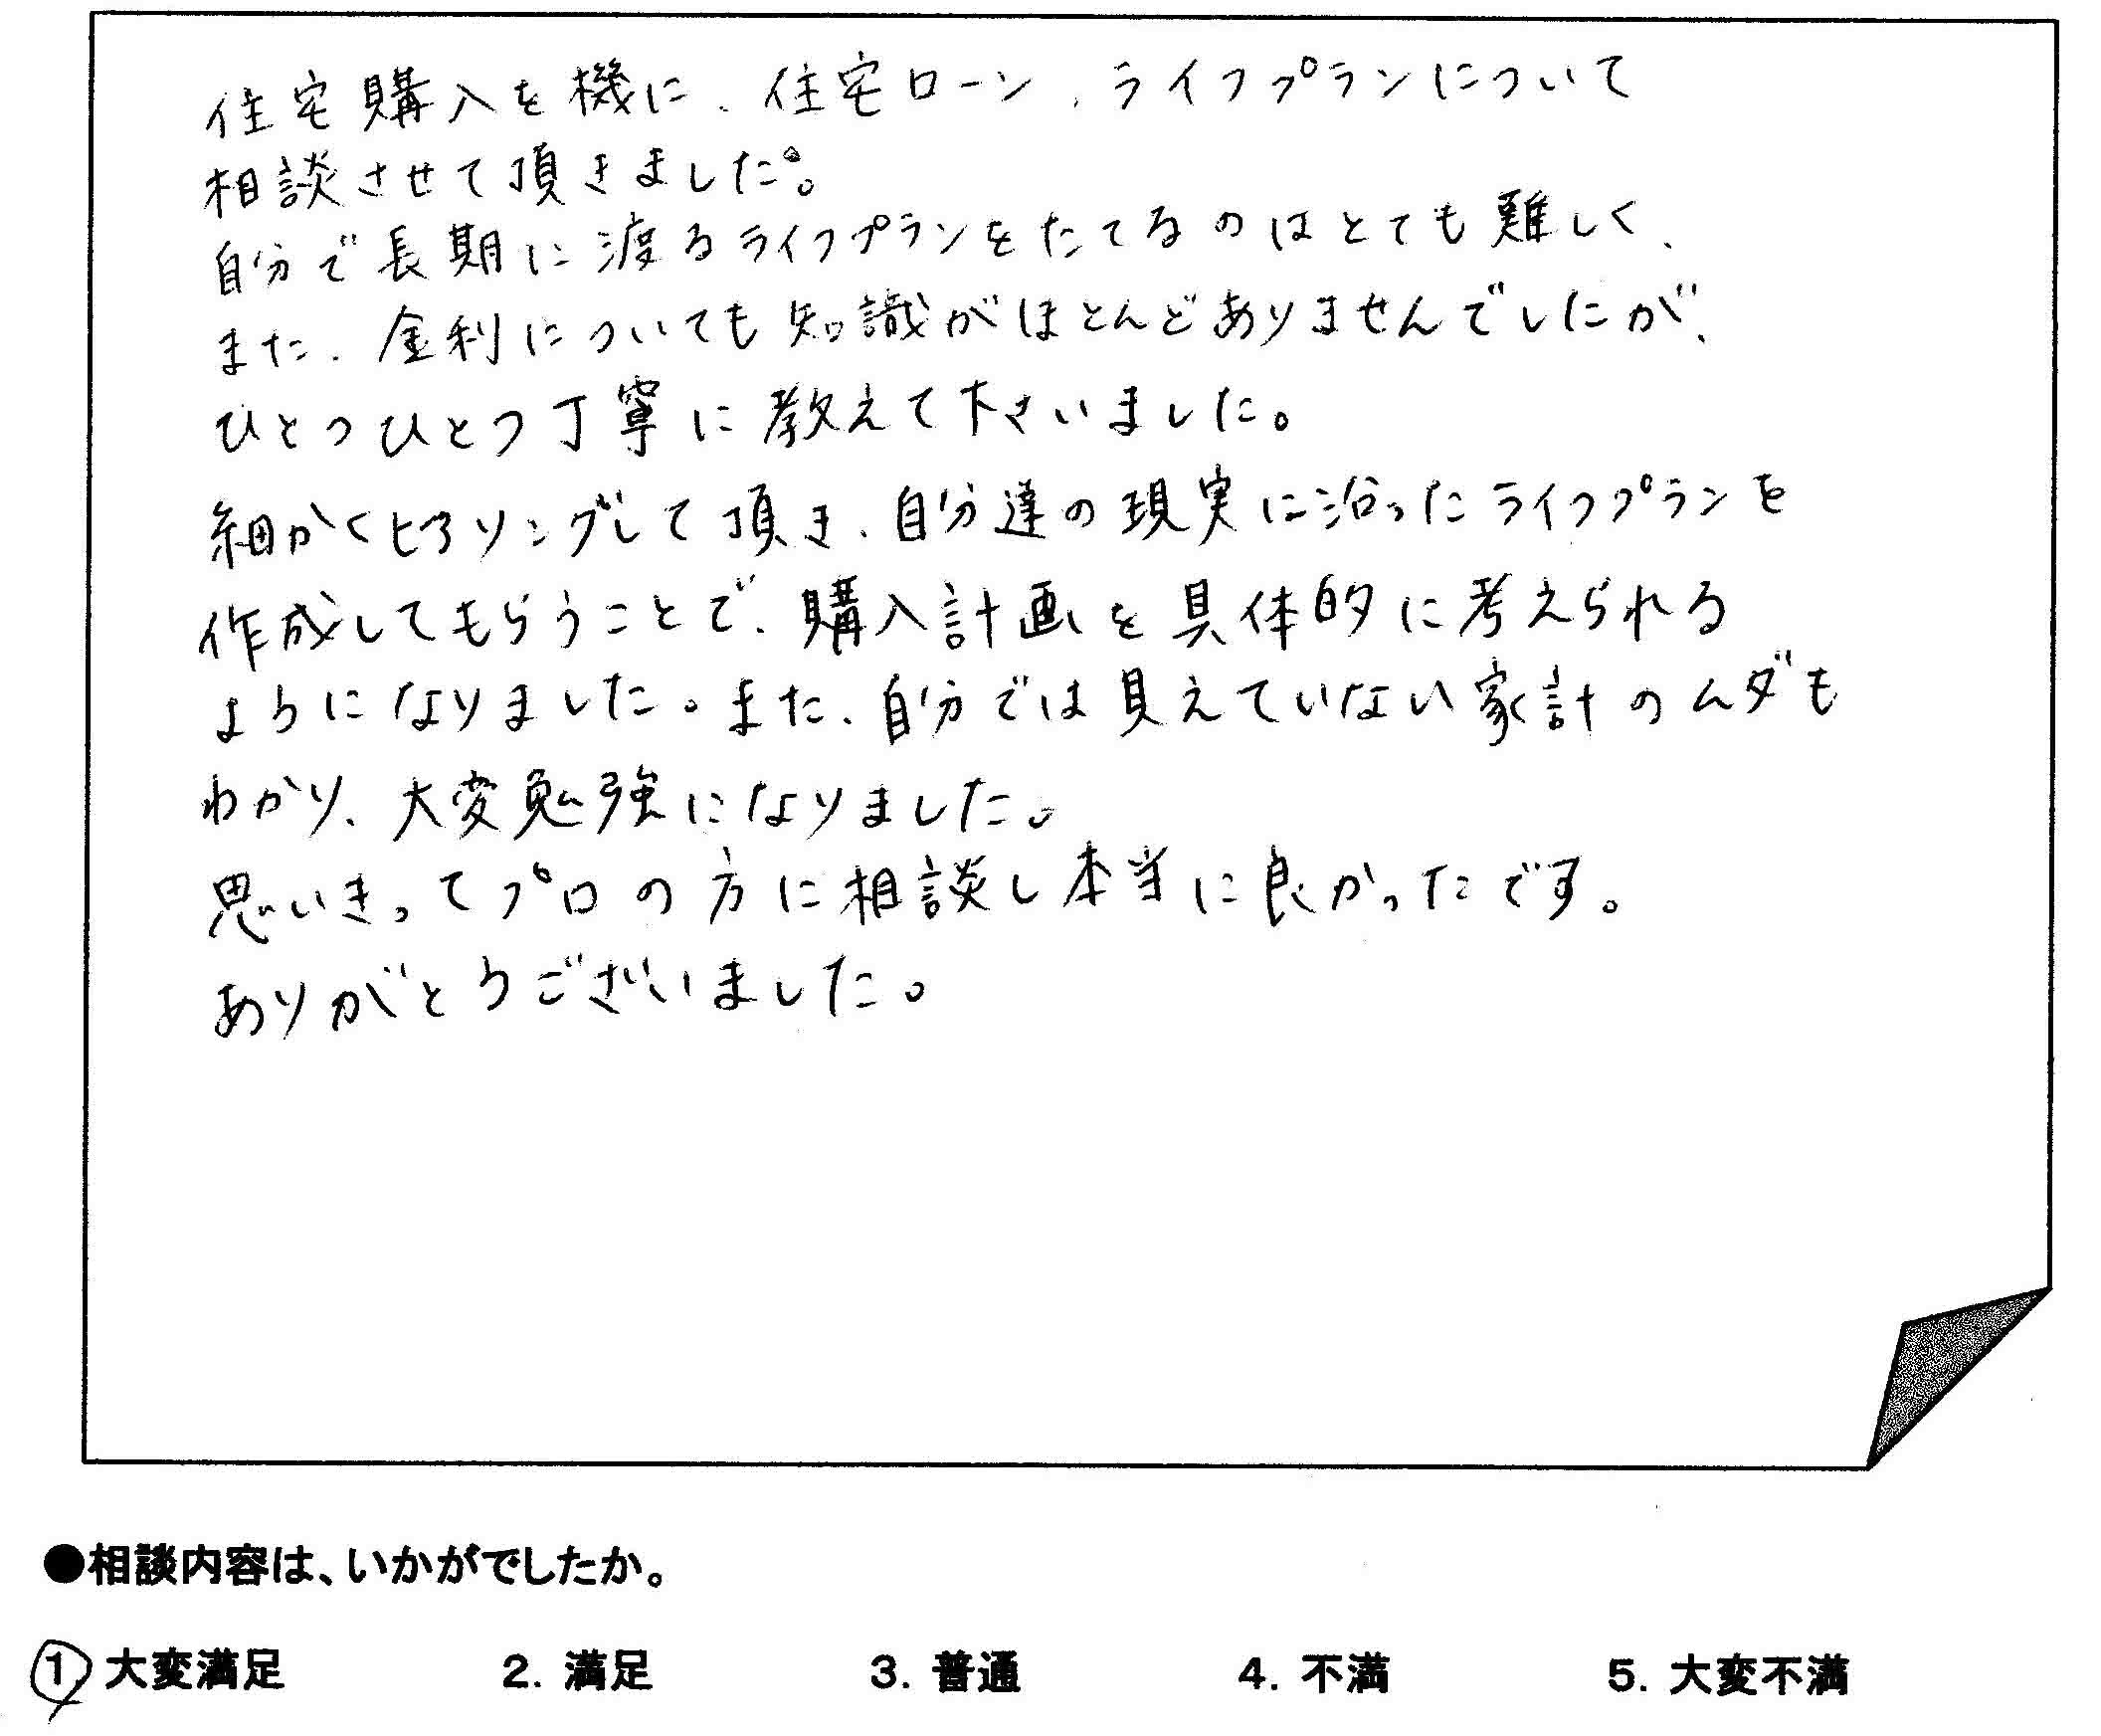 住宅購入を機に、住宅ローン、ライフプランについて
相談させて頂きました。
自分で長期に渡るライフプランをたてるのはとても難しく、
また、金利についても知識がほとんどありませんでしたが、
ひとつひとつ丁寧に教えて下さいました。
細かくヒアリングして頂き、自分達の現実に沿ったライフプランを
作成してもらうことで、購入計画を具体的に考えられる
ようになりました。また、自分では見えていない家計のムダも
わかり、大変勉強になりました。
思いきってプロの方に相談し本当に良かったです。
ありがとうございました。
●相談内容は、いかがでしたか。
1. 大変満足 2. 満足 3. 普通 4. 不満 5. 大変不満